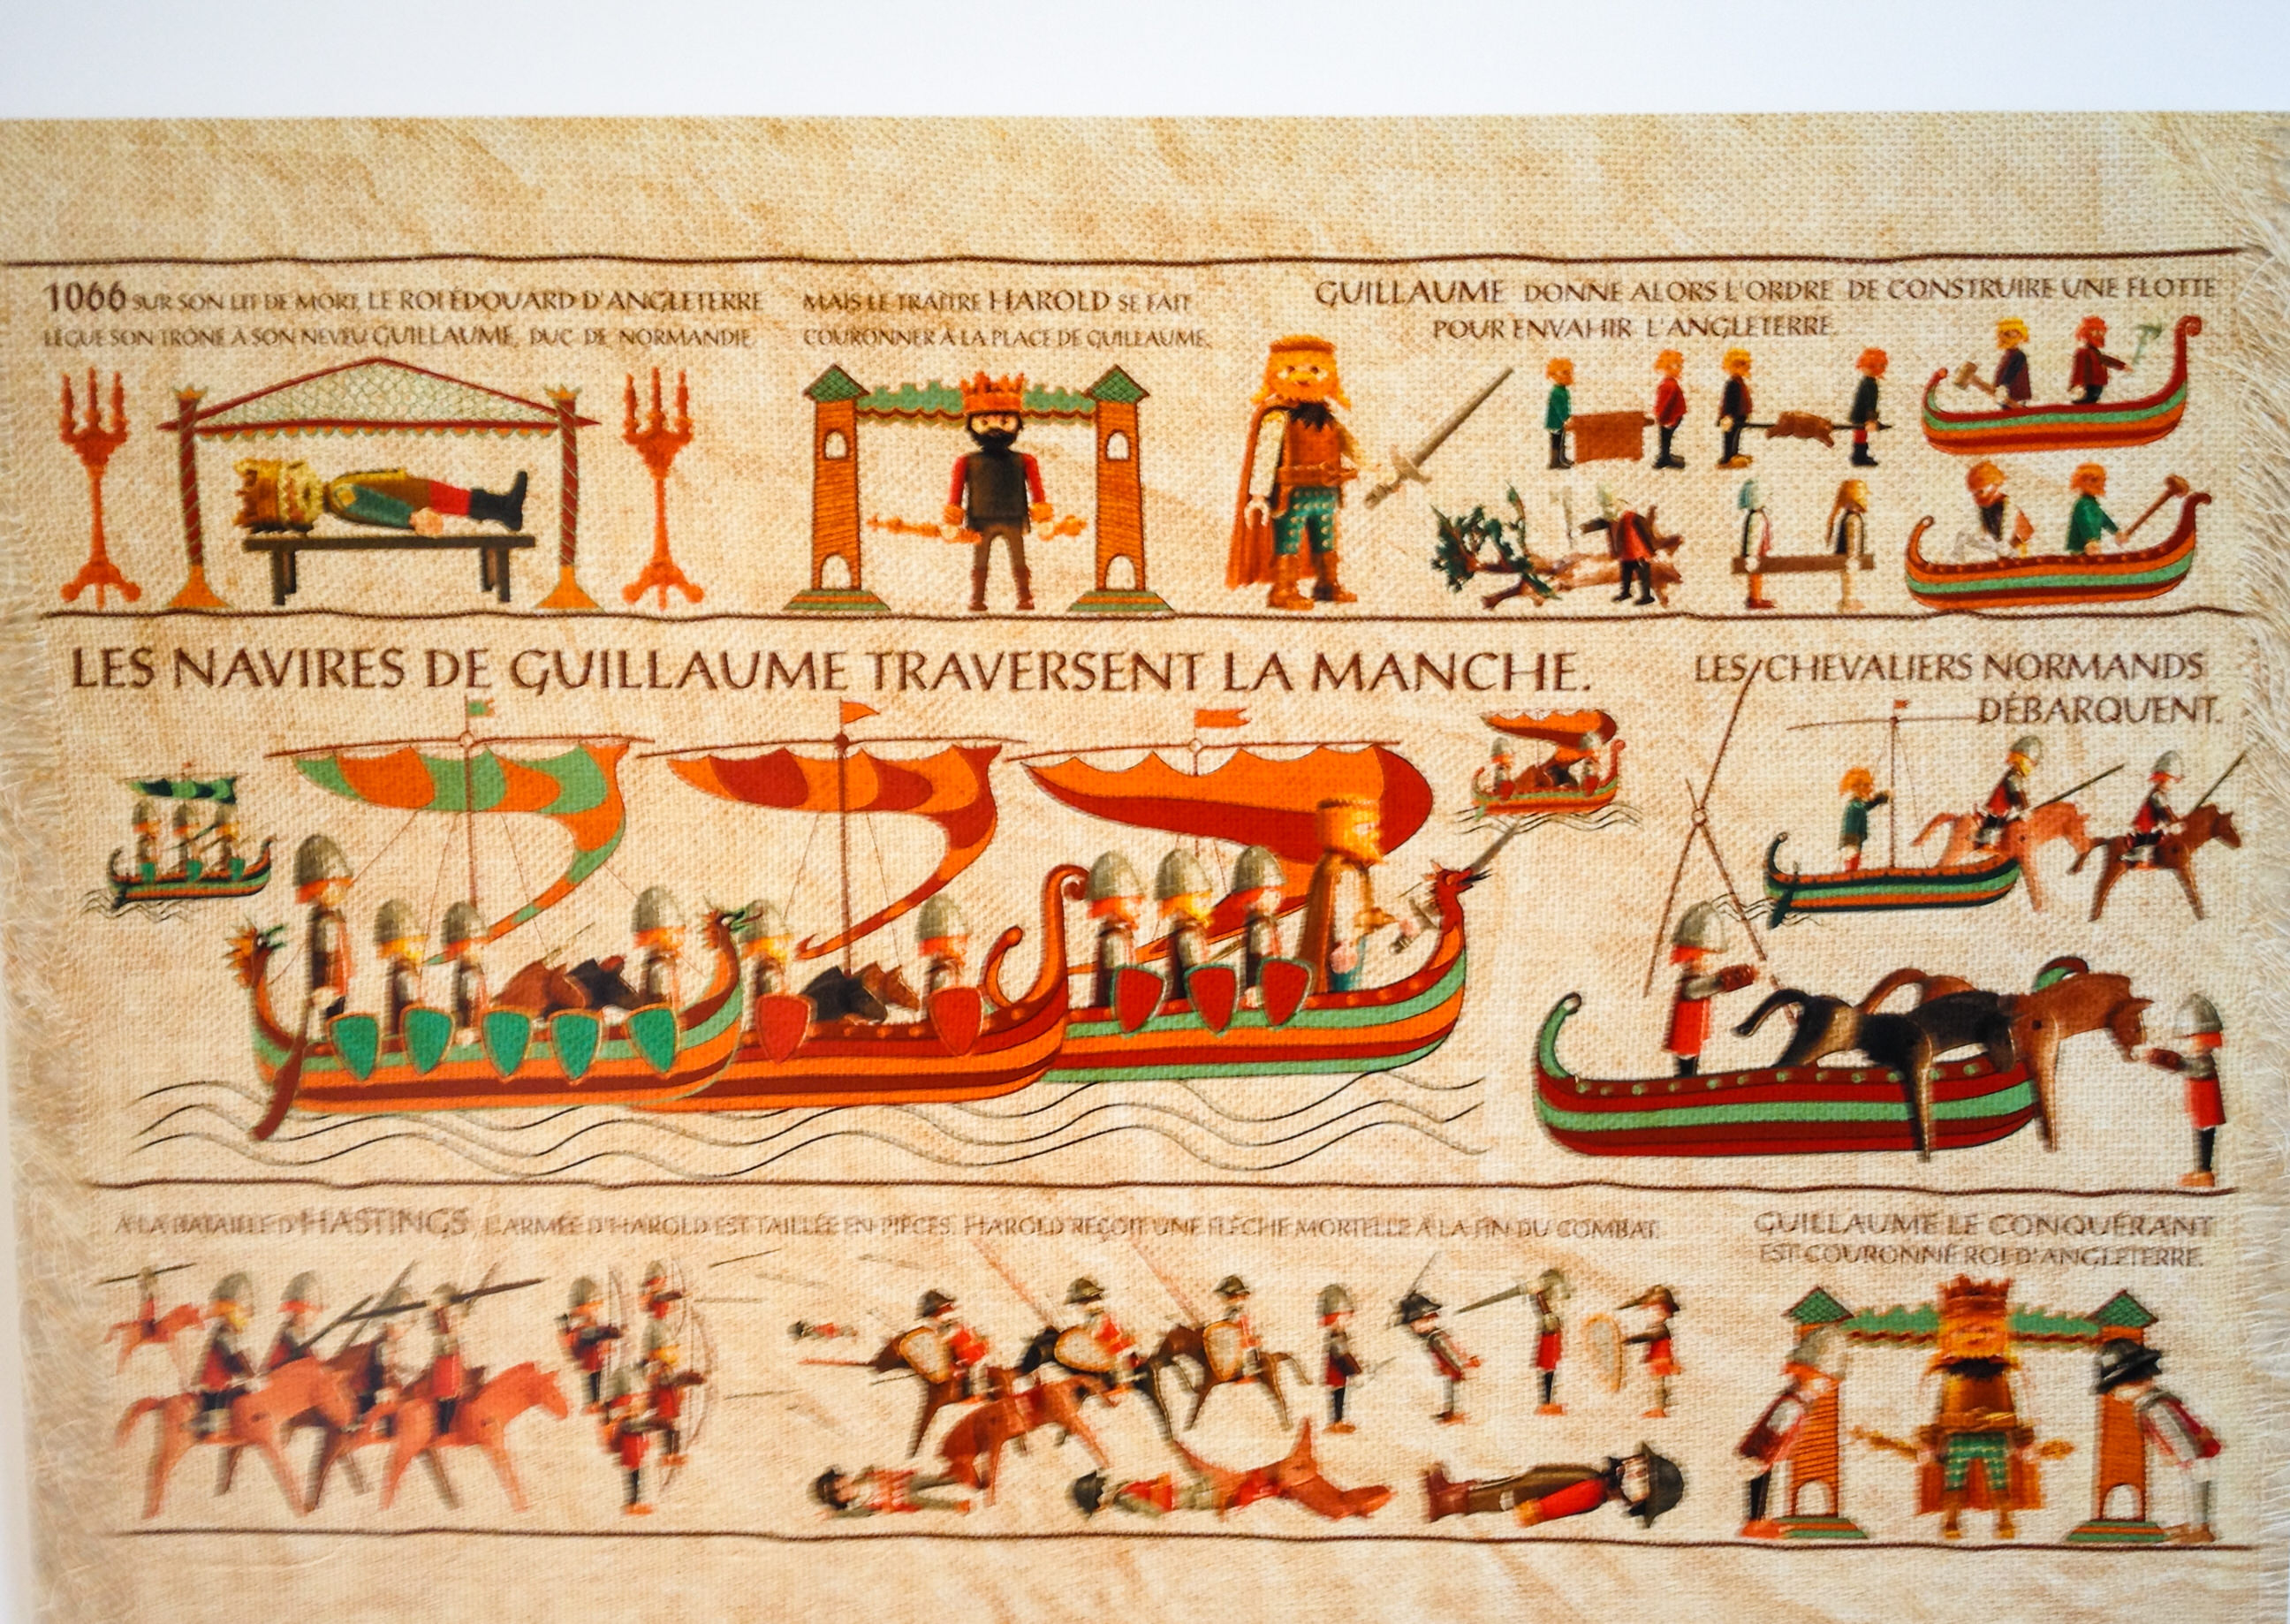 1066 SUR SON LIT DE MORT, LE ROI ÉDOUARD D'ANGLETERRE
LÈGUE SON TRÔNE À SON NEVEU GUILLAUME, DUC DE NORMANDIE.
MAIS LE TRAÎTRE HAROLD SE FAIT
COURONNER À LA PLACE DE GUILLAUME.
GUILLAUME DONNE ALORS L'ORDRE DE CONSTRUIRE UNE FLOTTE
POUR ENVAHIR L'ANGLETERRE.
LES NAVIRES DE GUILLAUME TRAVERSENT LA MANCHE.
LES CHEVALIERS NORMANDS
DÉBARQUENT.
À LA BATAILLE D'HASTINGS, L'ARMÉE D'HAROLD EST TAILLÉE EN PIÈCES. HAROLD REÇOIT UNE FLÈCHE MORTELLE À LA FIN DU COMBAT.
GUILLAUME LE CONQUÉRANT
EST COURONNÉ ROI D'ANGLETERRE.